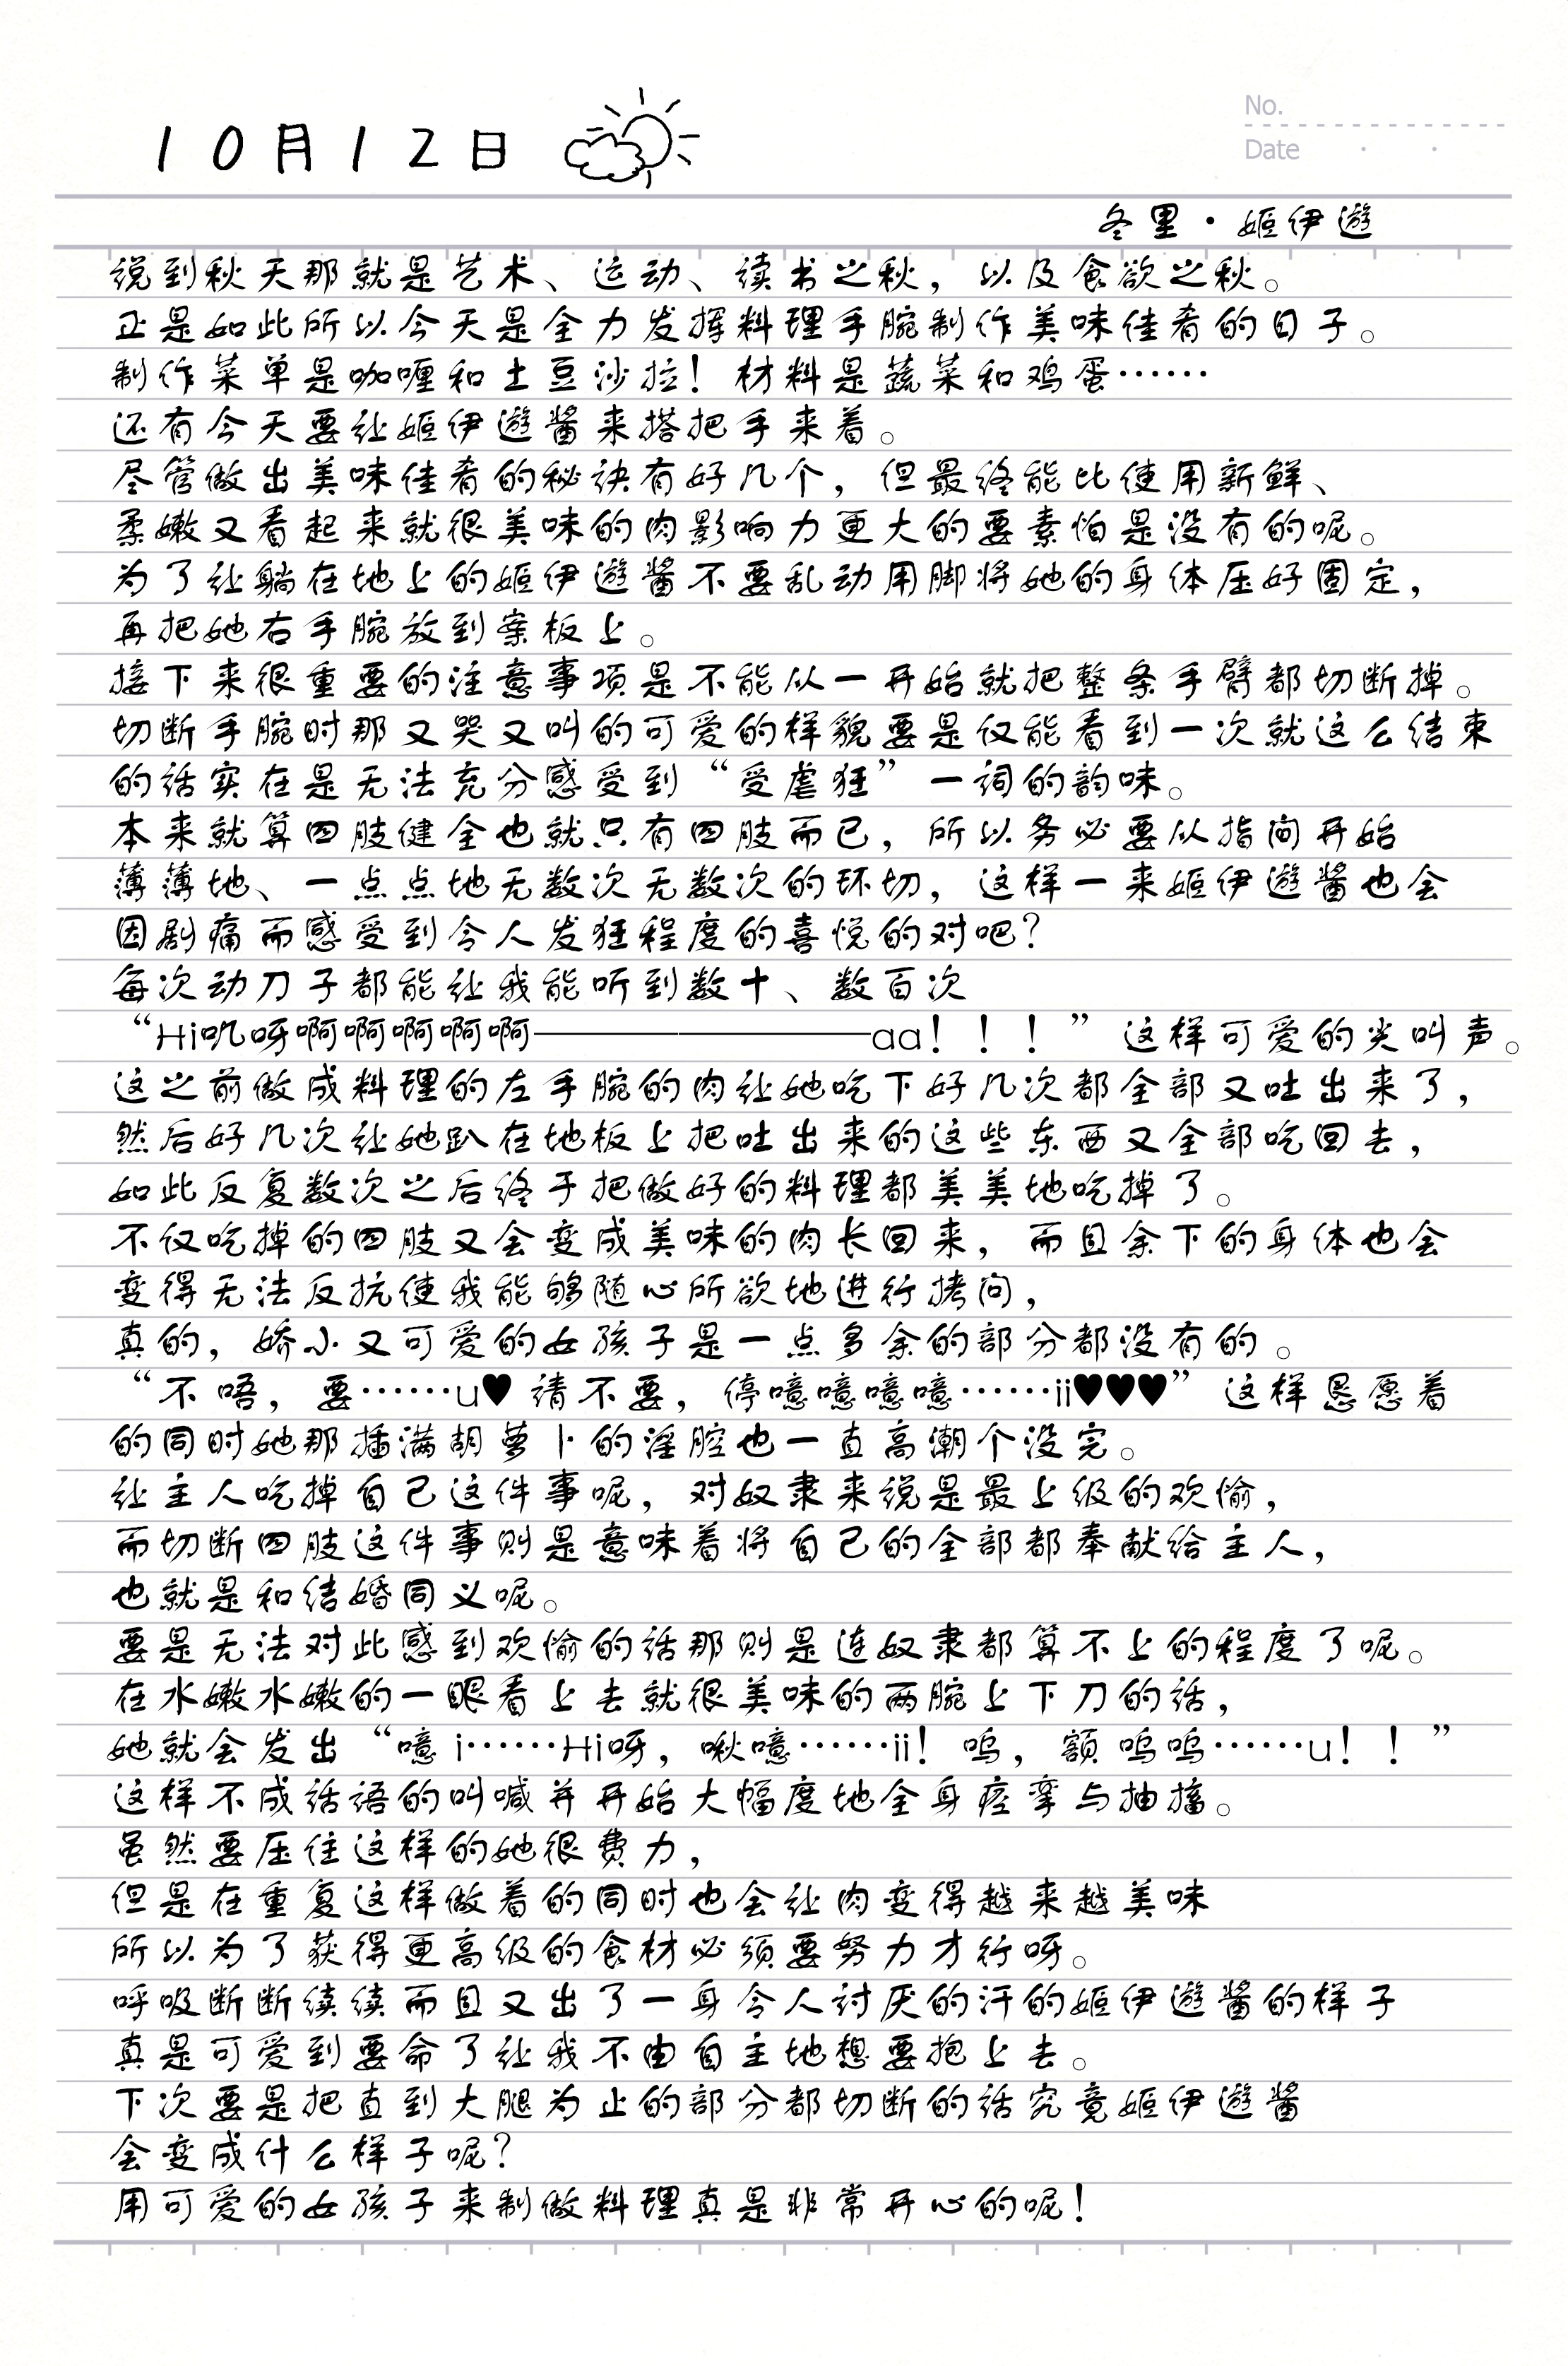 10月12日
No.
Date
冬里·姬伊遊
说到秋天那就是艺术、运动、读书之秋，以及食欲之秋。
正是如此所以今天是全力发挥料理手腕制作美味佳肴的日子。
制作菜单是咖喱和土豆沙拉！材料是蔬菜和鸡蛋……
还有今天要让姬伊遊酱来搭把手来着。
尽管做出美味佳肴的秘诀有好几个，但最终能比使用新鲜、
柔嫩又看起来就很美味的肉影响力更大的要素怕是没有的呢。
为了让躺在地上的姬伊遊酱不要乱动用脚将她的身体压好固定，
再把她右手腕放到案板上。
接下来很重要的注意事项是不能从一开始就把整条手臂都切断掉。
切断手腕时那又哭又叫的可爱的样貌要是仅能看到一次就这么结束
的话实在是无法充分感受到“受虐狂”一词的韵味。
本来就算四肢健全也就只有四肢而已，所以务必要从指间开始
薄薄地、一点点地无数次无数次的环切，这样一来姬伊遊酱也会
因剧痛而感受到令人发狂程度的喜悦的对吧？
每次动刀子都能让我能听到数十、数百次
“Hi叽呀啊啊啊啊啊———————aa！！！”这样可爱的尖叫声。
这之前做成料理的左手腕的肉让她吃下好几次都全部又吐出来了，
然后好几次让她趴在地板上把吐出来的这些东西又全部吃回去，
如此反复数次之后终于把做好的料理都美美地吃掉了。
不仅吃掉的四肢又会变成美味的肉长回来，而且余下的身体也会
变得无法反抗使我能够随心所欲地进行拷问，
真的，娇小又可爱的女孩子是一点多余的部分都没有的。
“不唔，要……u♥请不要，停噫噫噫噫……ii♥♥♥”这样恳愿着
的同时她那插满胡萝卜的淫腔也一直高潮个没完。
让主人吃掉自己这件事呢，对奴隶来说是最上级的欢愉，
而切断四肢这件事则是意味着将自己的全部都奉献给主人，
也就是和结婚同义呢。
要是无法对此感到欢愉的话那则是连奴隶都算不上的程度了呢。
在水嫩水嫩的一眼看上去就很美味的两腕上下刀的话，
她就会发出“噫i……Hi呀，啾噫……ii！呜，额呜呜……u！！”
这样不成话语的叫喊并开始大幅度地全身痉挛与抽搐。
虽然要压住这样的她很费力，
但是在重复这样做着的同时也会让肉变得越来越美味
所以为了获得更高级的食材必须要努力才行呀。
呼吸断断续续而且又出了一身令人讨厌的汗的姬伊遊酱的样子
真是可爱到要命了让我不由自主地想要抱上去。
下次要是把直到大腿为止的部分都切断的话究竟姬伊遊酱
会变成什么样子呢？
用可爱的女孩子来制做料理真是非常开心的呢！